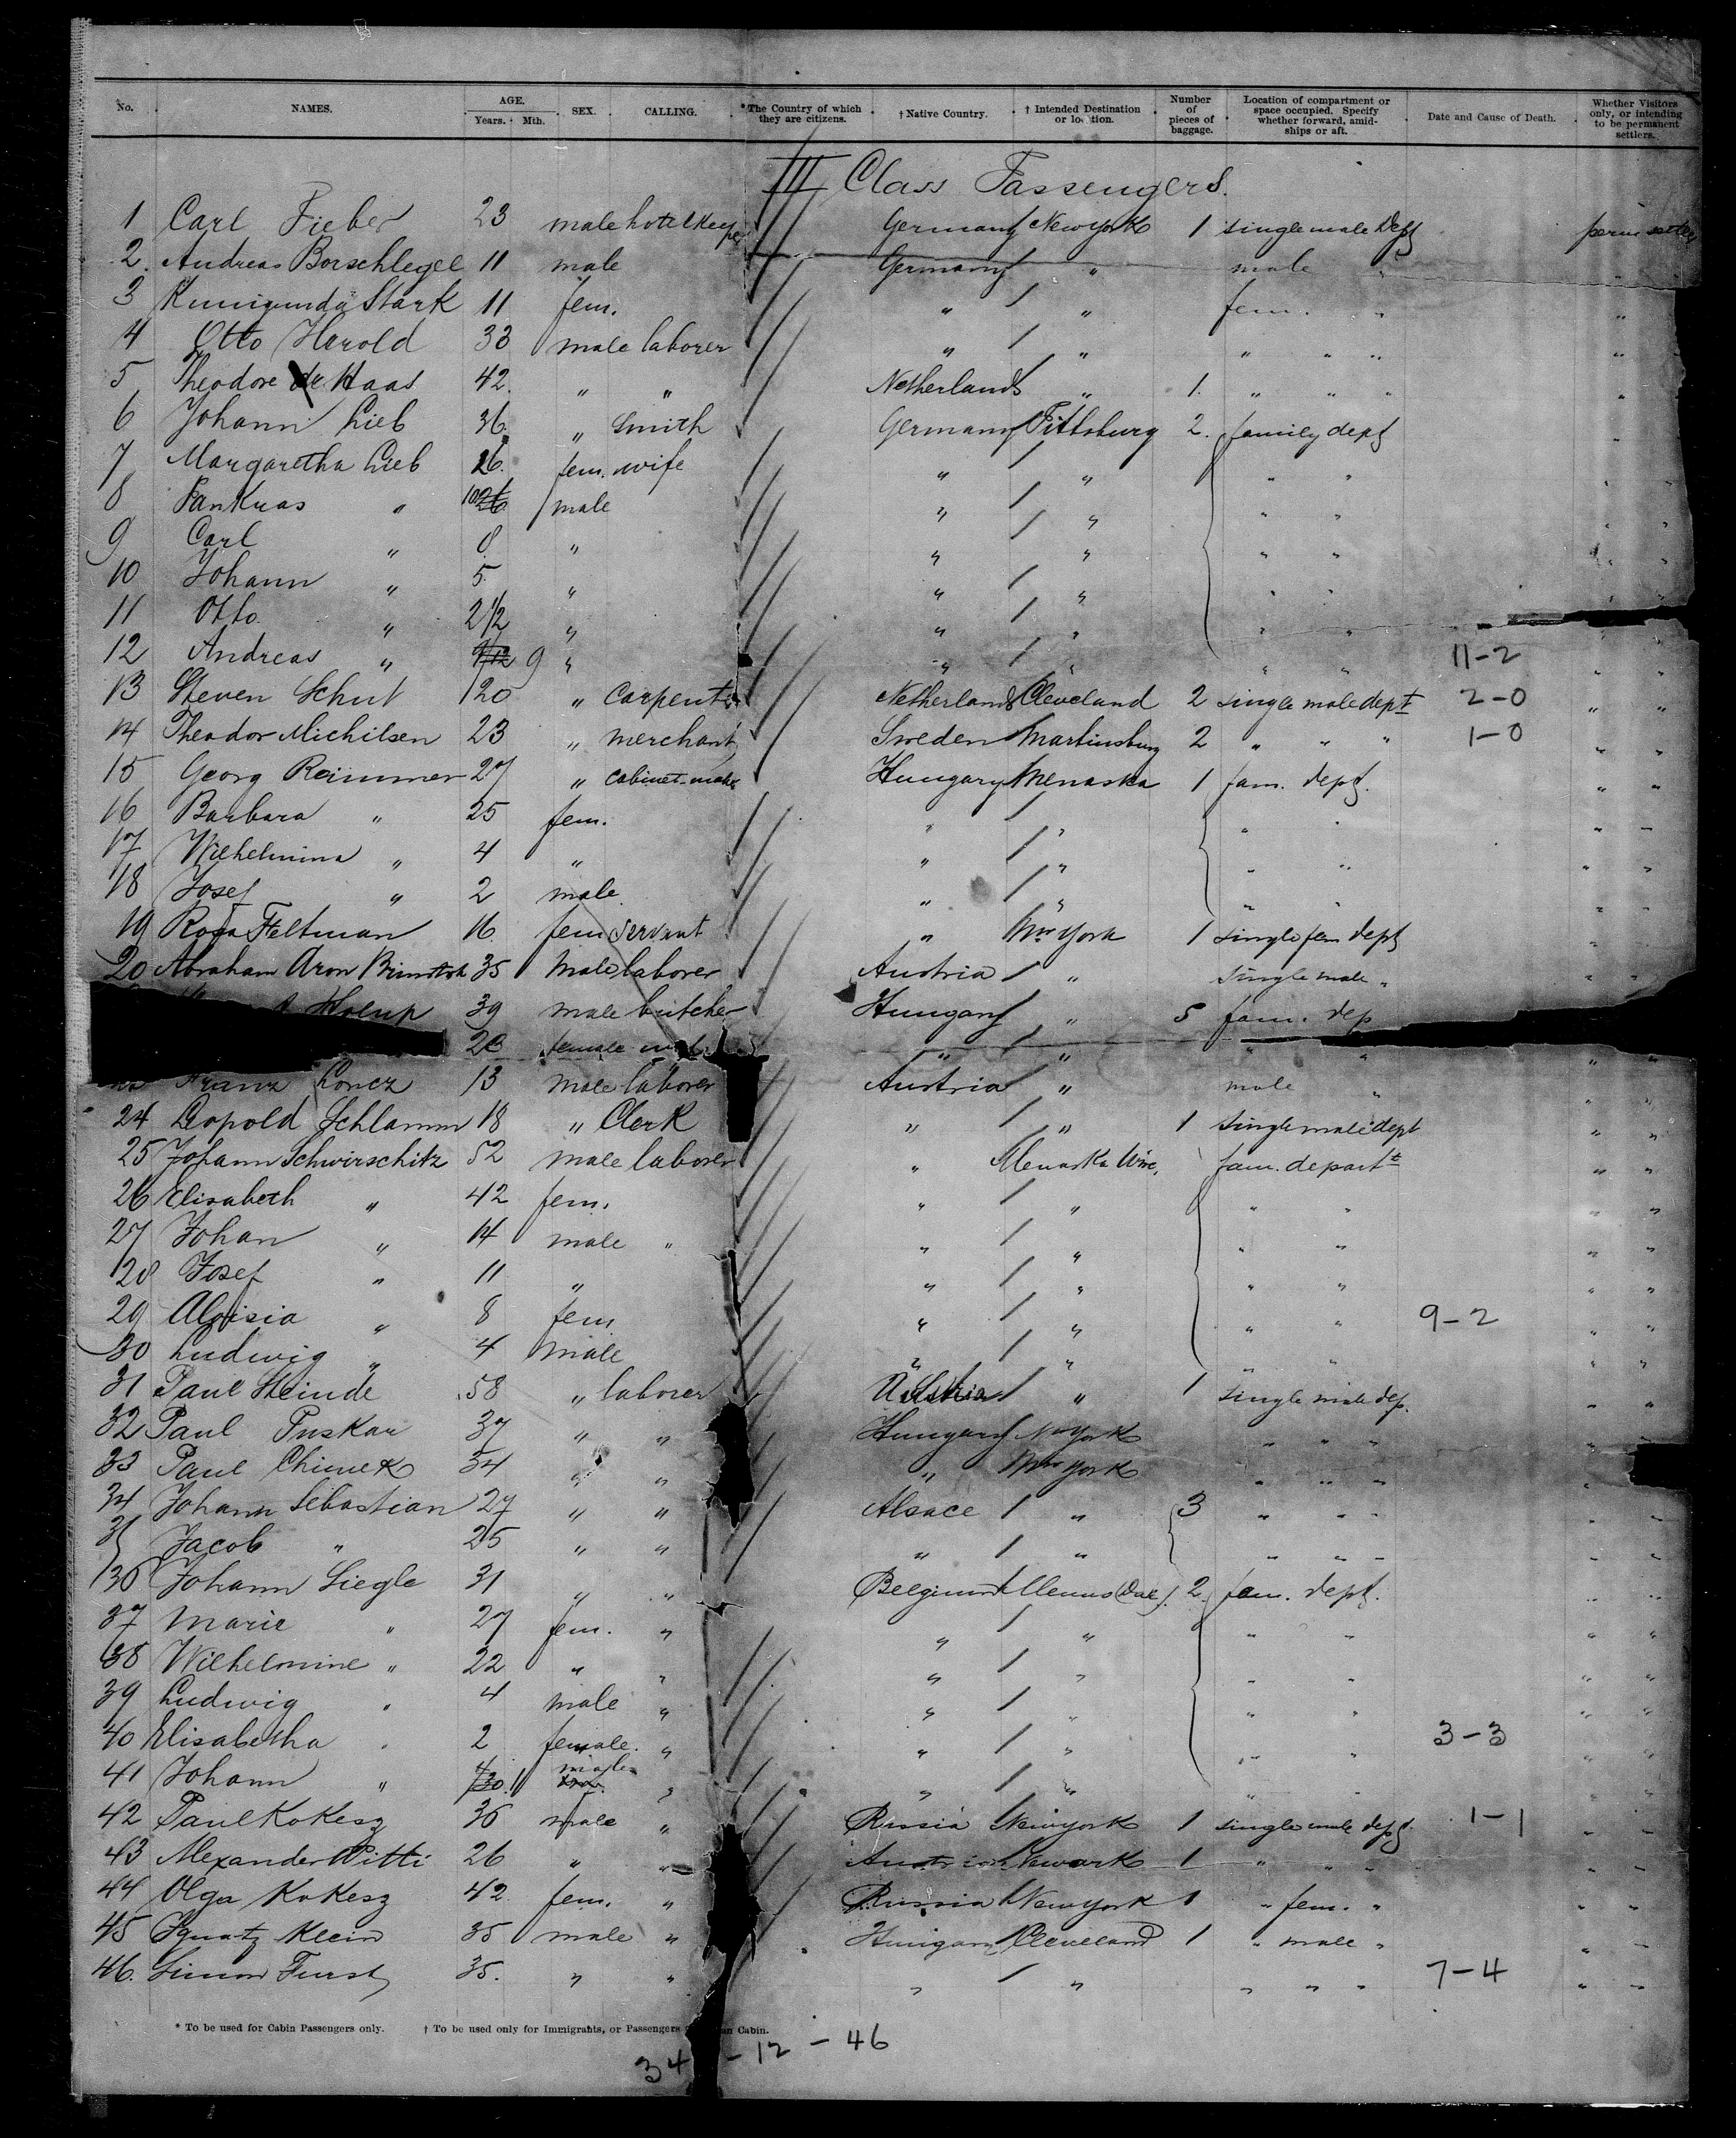 No. NAMES. AGE. Years. Mth. SEX. CALLING. *The Country of which they are citizens. † Native Country. † Intended Destination or lo tion. Number of pieces of baggage. Location of compartment or space occupied. Specify whether forward, amidships or aft. Date and Cause of Death. Whether Visitors only, or intending to be permanent settlers.
III Class Passengers.
1 Carl Fieber 23 male hotelkeeper Germany New York 1 single male Dept perm settler
2. Andreas Borschlegel 11 male Germany " male " " "
3 Kunigunda Stark 11 fem. " " fem. " "
4 Otto Herold 33 male laborer " " " " " "
5 Theodore de Haas 42. " " Netherlands " 1. " " " "
6 Johann Lieb 36. " Smith Germany Pittsburg 2. family dept "
7 Margaretha Lieb 26. fem. wife " " " " "
8 Pankras " 10 26 male " " " " " "
9 Carl " 8. " " " " " " "
10 Johann " 5. " " " " " " "
11 Otto " 2 1/2 " " " " "
12 Andreas " 9/12 9 " " " " " 11-2 " "
13 Steven Schut 20 " carpenter Netherlands Cleveland 2 single male dept 2-0 " "
14 Theodor Michilsen 23 " merchant Sweden Martinsburg 2 " " " 1-0 " "
15 Georg Rammer 27 " cabinet-maker Hungary Menaska 1 fam. dept. " "
16 Barbara " 25 fem. " " " " " "
17 Wilhelmina " 4 " " " " " " "
18 Josef " 2 male. " " " " " "
19 Rosa Feltman 16. fem servant " New York 1 single fem dept " "
20 Abraham Aron 35 Male laborer Austria " single male " " "
Holup 39 male butcher Hungary " 5 fam. dep
28 female " " " " " "
Franz Loncz 13 male laborer Austria " male " " "
24 Leopold Schlamm 18 " Clerk " " 1 single male dept " "
25 Johann Schwirschitz 52 male laborer " Menaska Wisc. fam. depart t " "
26 Elisabeth " 42 fem. " " " " " "
27 Johan " 14 male " " " " " " "
28 Josef " 11 " " " " " " "
29 Aloisia " 8 fem " " " " 9-2 " "
30 Ludwig " 4 male " " " " " "
31 Paul Steinde 58 " laborer Austria " 1 single male dep. " "
32 Paul Puskar 37 " " Hungary New York " " " "
33 Paul Chimek 34 " " " New York " " " "
34 Johann Sebastian 27 " " Alsace " 3 " " " " "
35 Jacob " 25 " " " " " " " " "
36 Johann Siegle 31 " " Belgium 2. fam. dept. " "
37 Marie " 27 fem. " " " " " " "
38 Wilhelmine " 22 " " " " " " " "
39 Ludwig " 4 male " " " " " " "
40 Elisabetha " 2 female. " " " " " 3-3 " "
41 Johann " male " " " " " " "
42 Paul Kokesz 36 male " Russia New York 1 single male dept. 1-1 " "
43 Alexander Pitti 26 " " Austria Newark 1 " " " " "
44 Olga Kokesz 42. fem. " Russia New York 1 " fem. " " "
45 Ignatz Klein 35 male " Hungary Cleveland 1 " male " " "
46. Simon Furst 35. " " " " " " " 7-4 " "
* To be used for Cabin Passengers only. † To be used only for Immigrants, or Passengers an Cabin.
34 - 12 - 46